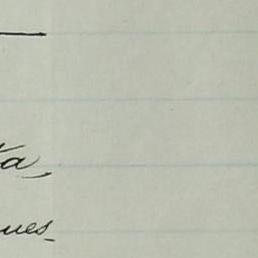 a,
ues-